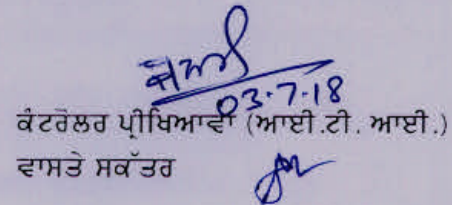 03-7-18
ਕੰਟਰੋਲਰ ਪ੍ਰੀਖਿਆਵਾਂ (ਆਈ.ਟੀ. ਆਈ.)
ਵਾਸਤੇ ਸਕੱਤਰ